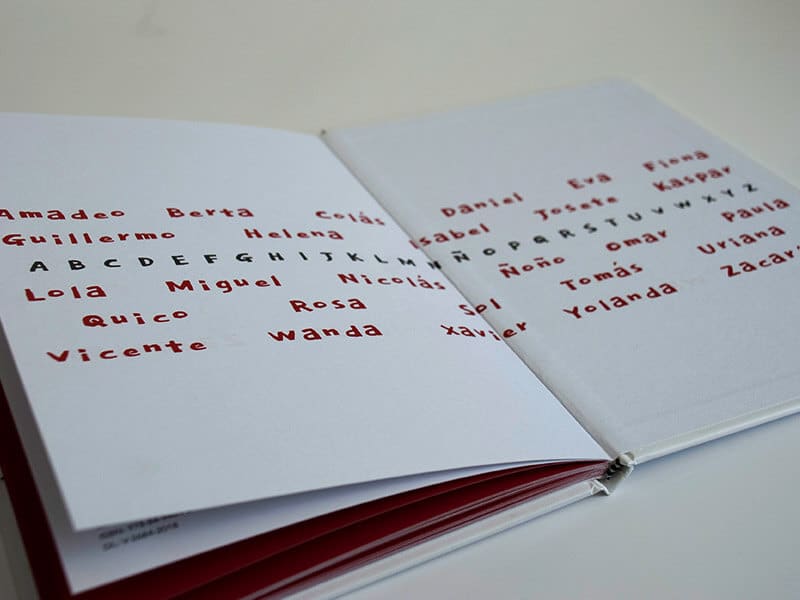 Amadeo Berta Colás Daniel Eva Fiona
Guillermo Helena Isabel Josete Kaspar
A B C D E F G H I J K L M N Ñ O P Q R S T U V W X Y Z
Lola Miguel Nicolás Ñoño Omar Paula
Quico Rosa Sol Tomás Uriana
Vicente Wanda Xavier Yolanda Zacar
ISBN: